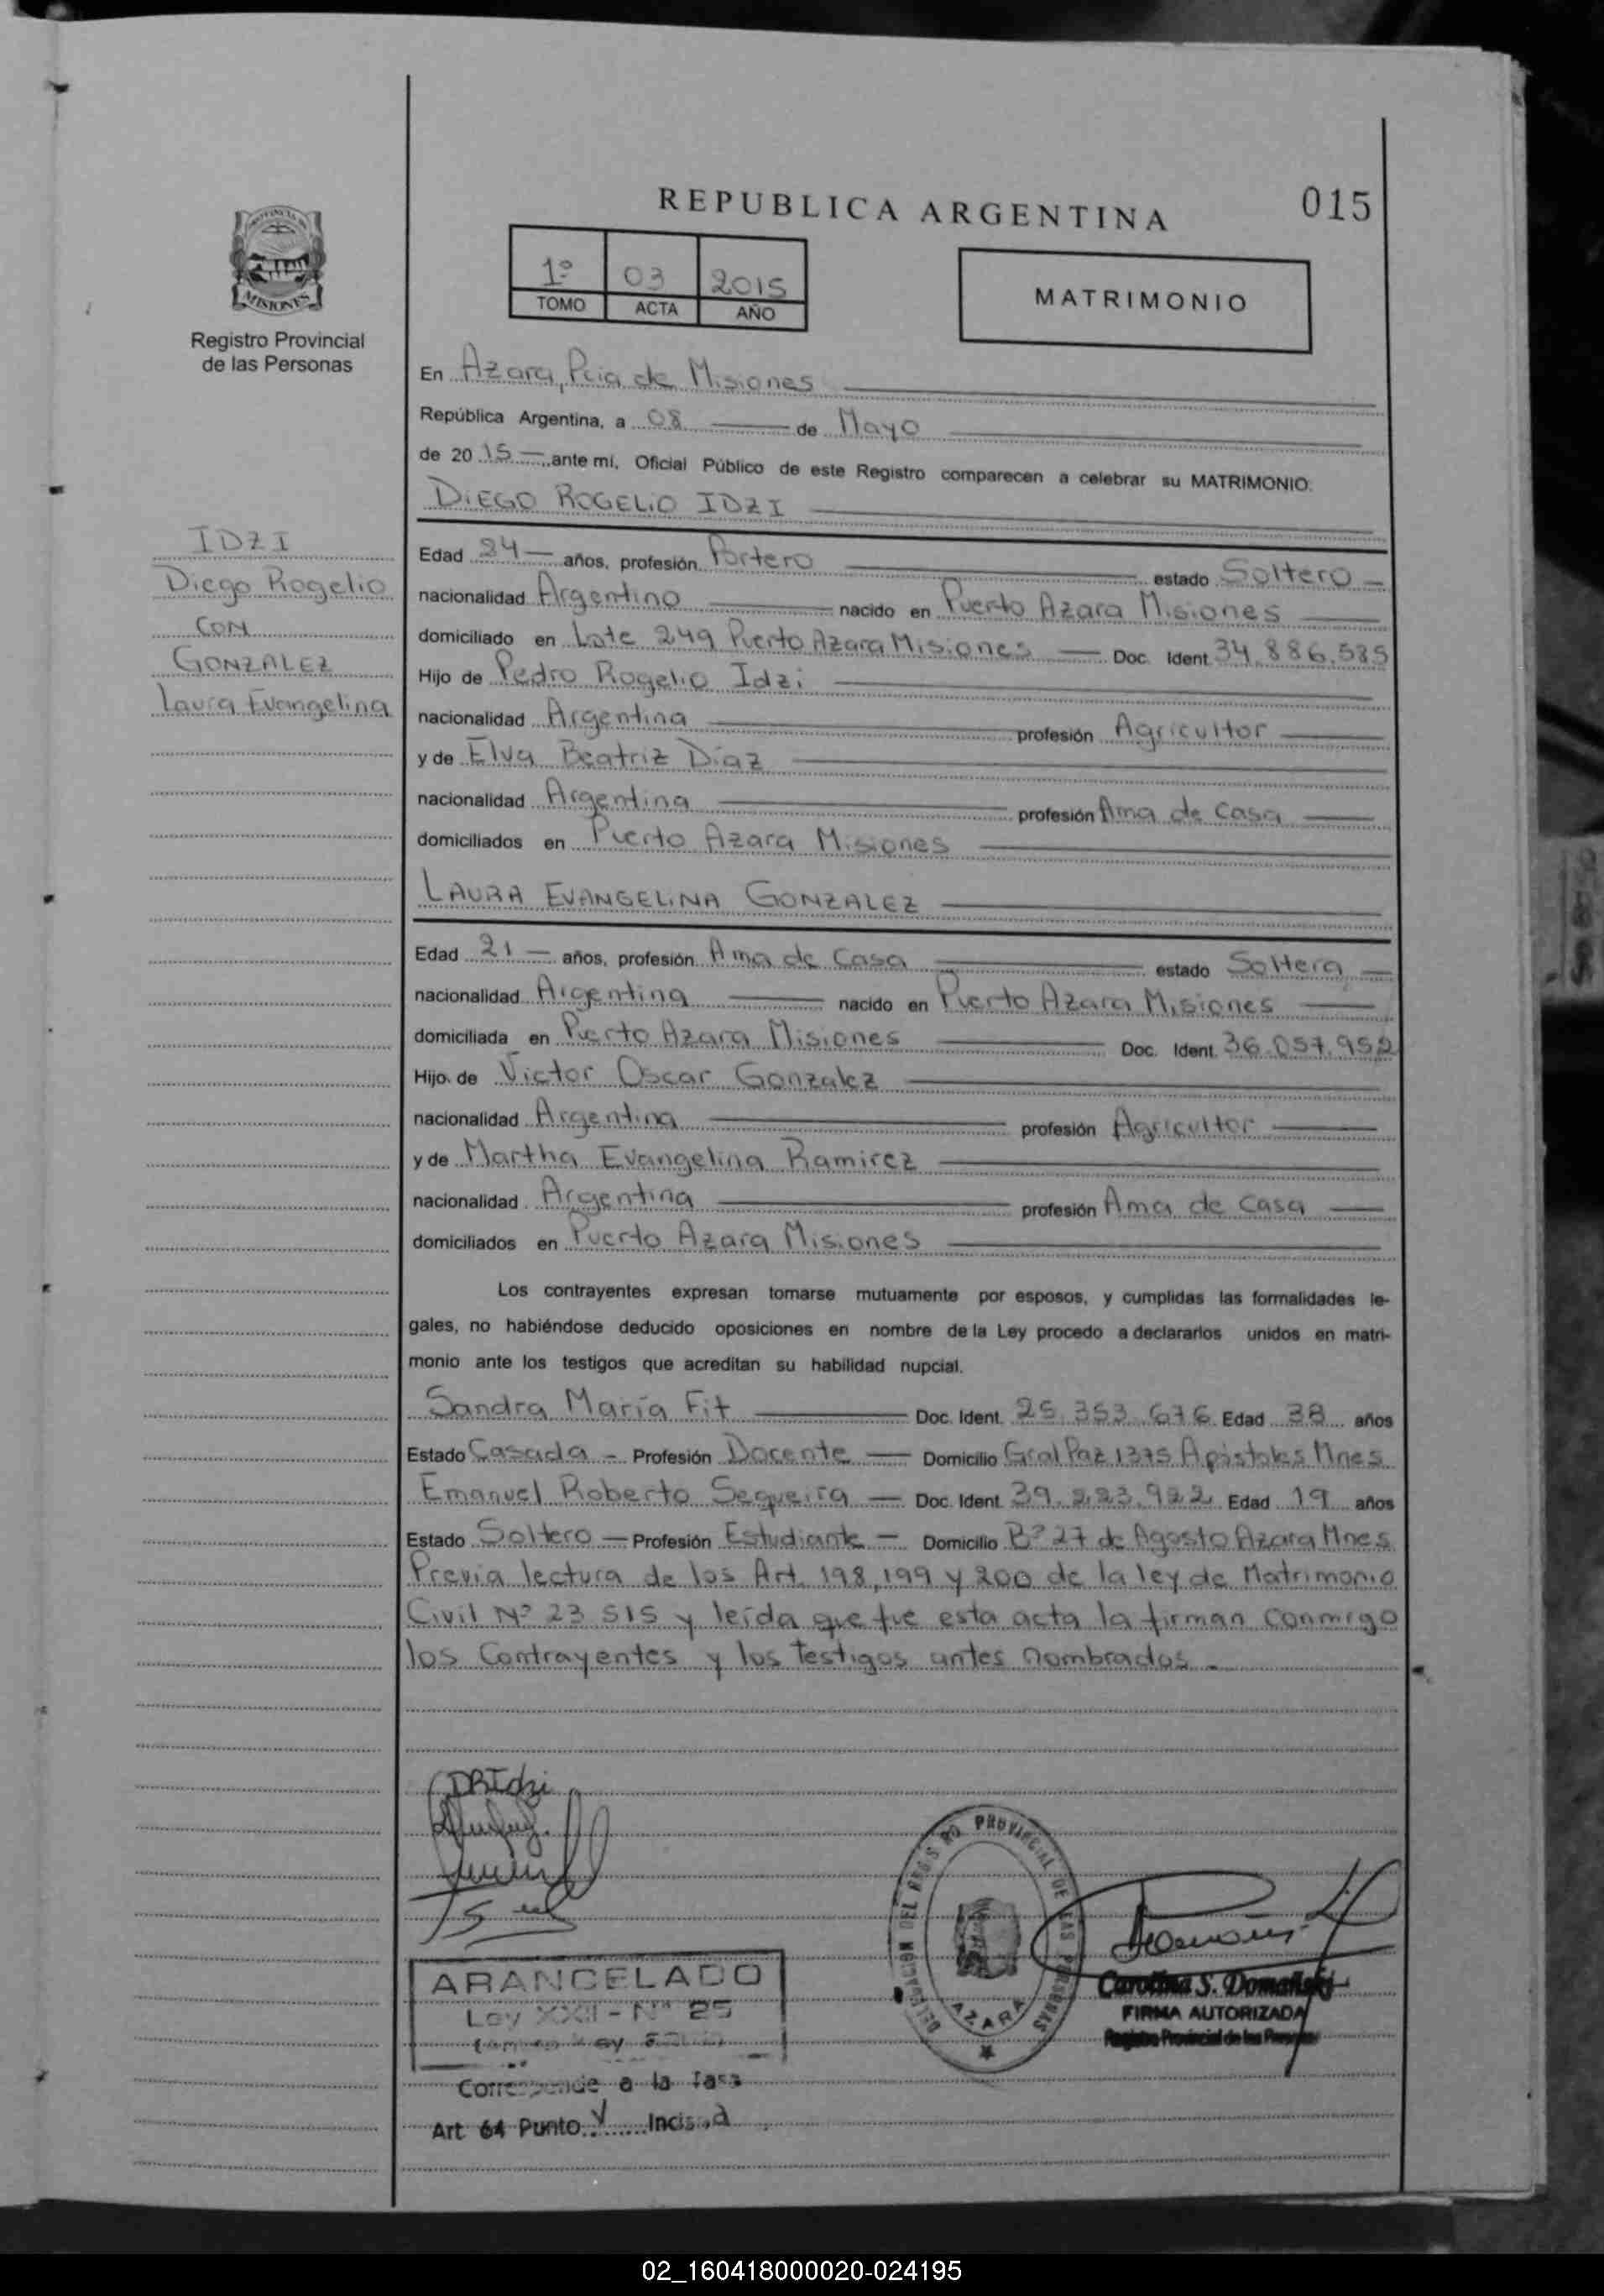 REPUBLICA ARGENTINA
015
MISIONES
Registro Provincial
de las Personas
1º 03 2015
TOMO ACTA AÑO
MATRIMONIO
En Azara, Pcia de Misiones
República Argentina, a 08 de Mayo
de 20 15 ante mí, Oficial Público de este Registro comparecen a celebrar su MATRIMONIO:
DIEGO ROGELIO IDZI
IDZI
Diego Rogelio
CON
GONZALEZ
Laura Evangelina
Edad 24 años, profesión Portero estado Soltero
nacionalidad Argentino nacido en Puerto Azara Misiones
domiciliado en Lote 249 Puerto Azara Misiones Doc. Ident. 34.886.585
Hijo de Pedro Rogelio Idzi
nacionalidad Argentina profesión Agricultor
y de Elva Beatriz Díaz
nacionalidad Argentina profesión Ama de Casa
domiciliados en Puerto Azara Misiones
LAURA EVANGELINA GONZALEZ
Edad 21 años, profesión Ama de Casa estado Soltera
nacionalidad Argentina nacido en Puerto Azara Misiones
domiciliada en Puerto Azara Misiones Doc. Ident. 36.057.952
Hijo de Victor Oscar Gonzalez
nacionalidad Argentina profesión Agricultor
y de Martha Evangelina Ramirez
nacionalidad Argentina profesión Ama de Casa
domiciliados en Puerto Azara Misiones
Los contrayentes expresan tomarse mutuamente por esposos, y cumplidas las formalidades le-
gales, no habiéndose deducido oposiciones en nombre de la Ley procedo a declararlos unidos en matri-
monio ante los testigos que acreditan su habilidad nupcial.
Sandra María Fit Doc. Ident. 25.353.676 Edad 38 años
Estado Casada - Profesión Docente Domicilio Gral Paz 1375 Apóstoles Mnes
Emanuel Roberto Sequeira Doc. Ident. 39.223.922 Edad 19 años
Estado Soltero Profesión Estudiante Domicilio Bº 27 de Agosto Azara Mnes
Previa lectura de los Art. 198, 199 y 200 de la ley de Matrimonio
Civil Nº 23 515 y leída que fue esta acta la firman conmigo
los Contrayentes y los testigos antes nombrados.
DRIdzi
DELEGACION DEL REGISTRO PROVINCIAL DE LAS PERSONAS
AZARA
Carolina S. Domański
FIRMA AUTORIZADA
Registro Provincial de las Personas
ARANCELADO
Ley XXII - Nº 25
Corresponde a la Tasa
Art 64 Punto V Inciso d
02_160418000020-024195